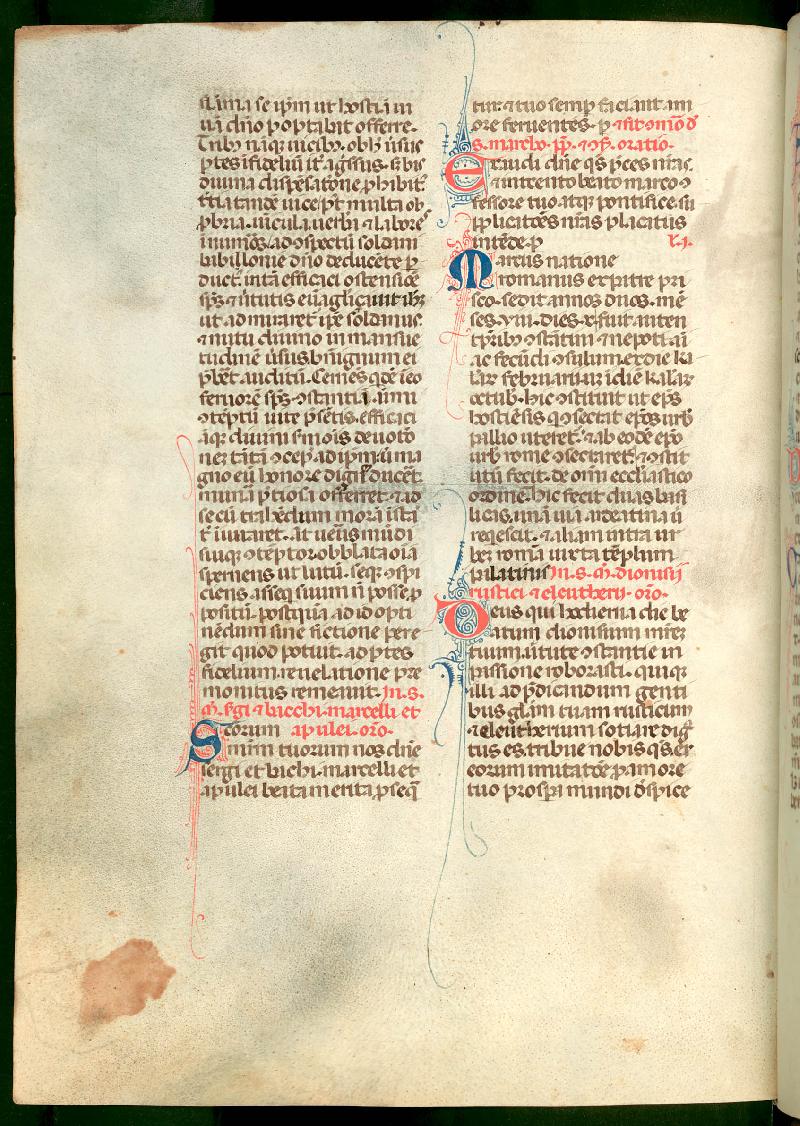 ȧlima se ip̄m ut hostiā ui
uā dn̄o ꝑoptabit offerre.
Tribꝫ nāqꝫ uicibꝫ. obh̄ ūsus
ꝑtes īfideliū it̄ aḡssus. s; bis
diuina disp̄satōne ꝓhibit᷑.
t̄tia tandē uice pꝰ multa ob
ꝓbria. uīcula. uerb̄a ⁊ labores
innum̄os. ad ꝯspectū soldani
babilonie dn̄o deducēte ꝑ
duct᷑. intā efficaci ostensiōe
sp̄s ⁊ uirtutis euāgliçauit ih̄m
ut admiraret᷑ ip̄e soldanus.
⁊ nutu diuino in mansue
tudinē ūsus. benignum ei
p̄bēt auditū. Cernēs qͦdē ī eo
feruorē sp̄s ꝯstantiā. aīmi
ꝯtēptū uite p̄sētis. efficaci
āqꝫ diuini s̄monis. deuotō
neꝫ tātā ꝯcepͭ ad ip̄m. ūt ma
gno eū honore dignū ducēt.
munā p̄tiosa offerret. ⁊ ad
secū trahēdum morā īsta
t̄ īuitaret. At ueꝰ mūdi
suiqꝫ ꝯtēptor oblata oīa
sperniens ut lutū. seqꝫ ꝯspi
ciens. assequi suum nō posse ꝓ
positū. postquā ad id opti
nēdum sine fictione pere
git quod potuit. ad ꝑtes
fidelium. reuelatione pre
monitus remeauit. In. s.
m̄. s̄gi ⁊ bacchi. marcelli et
Sctorum apulei. orō.
mīm tuorum nos dn̄e
sergi et bachi. marcelli et
apulei beata merita ꝓseqū
tur: ⁊ tuo semꝑ faciant am
ore feruentes. ꝑ ⁊ sit om̄o d̄
s. marcho. pp̄. ⁊ ꝯf. oratio.
Exaudi dn̄e qs̄ p̄ces nr̄as.
⁊ intercento beato marco ꝯ
fessore tuo atqꝫ pontifice. su
pplicatōes nr̄as placatus
intēde. ꝑ l̄. i.
Marcus natione
romanus ex patre pri
sco. sedit annos duos. mē
ses. VIII. dies. x. fuit autem
tp̄ribꝫ ꝯstantini ⁊ nepotiani
ac fecūdi ꝯsulum. ex die ka
lar. februariar. ī diē kalar
octub. hic ꝯstituit ut ep̄s
hostiēsis q̄ ꝯsecrat ep̄os urbꝭ
pallio uteret᷑: ⁊ ab eodē ep̄o
urbꝭ rome ꝯsecraret᷑. ⁊ ꝯstit
utū fecit. de om̄i ecclīastico
ordine. hic fecit duas basi
licas. unā uia ardeatina ū
reqescit. ⁊ aliam intra ur
bem romā iuxta tēplum
palatinis In. s. m̄. dionisii
rustici ⁊ eleutherii. orō.
Deus qui hodierna die be
atum dionisium mīrez
tuum. uirtute ꝯstantie in
passione roborasti. quiqꝫ
illi ad p̄dicandum genti
bus gl̄am tuam rusticum
⁊ eleutherium sotiare dig̅
tus es. tribue nobis qs̄ ex
eorum imitatōe. pro amore
tuo prospera mundi d̄spice